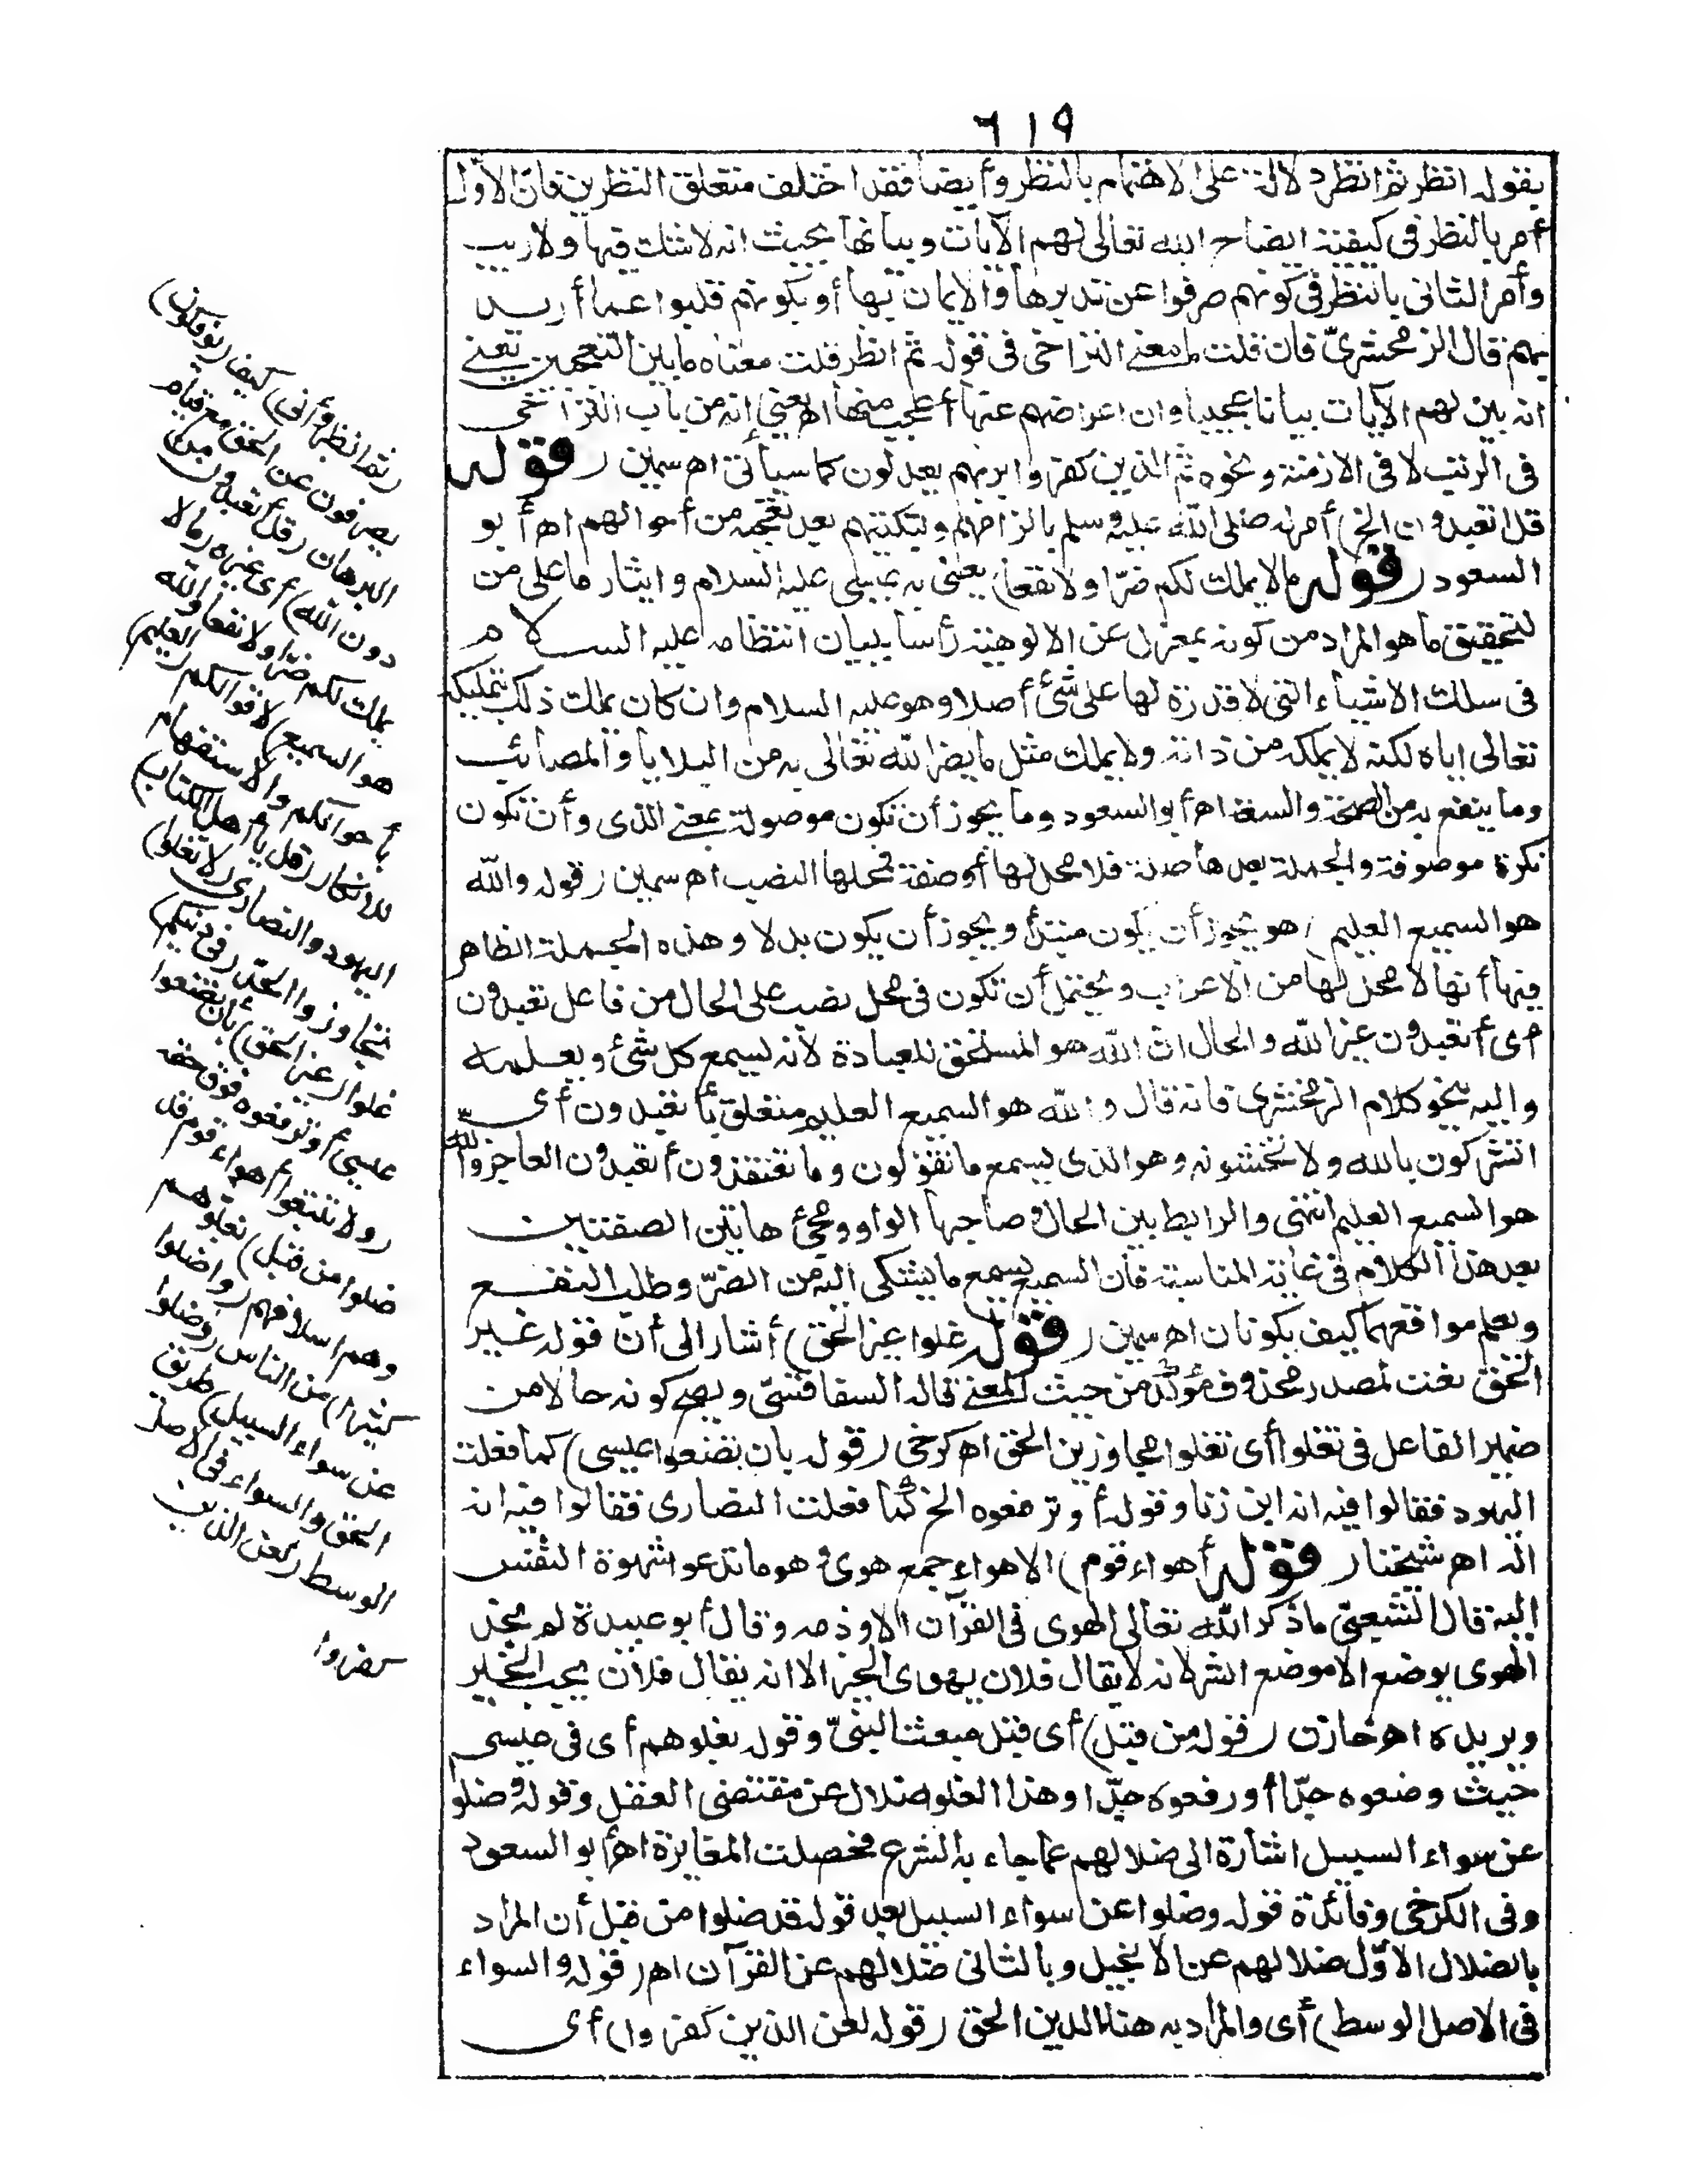 ٦١٩
بقوله انظر ثم انظر دلالة على الاهتمام بالنظر وأيضا فقد اختلف متعلق النظرين فان الأول
أمر بالنظر فى كيفية ايضاح الله تعالى لهم الآيات وبيانها بحيث انه لا شك فيها ولا ريب
وأمر الثانى بالنظر فى كونهم صرفوا عن تدبرها والايمان بها أو بكونهم قلبوا عما أريد
بهم قال الزمخشرىّ فان قلت ما معنى التراخى فى قوله ثم انظر قلت معناه ما بين التعجبين يعنى
انه بين لهم الآيات بيانا عجيبا وان اعراضهم عنها أعجب منها اهـ يعنى انه من باب التراخى
فى الرتب لا فى الازمنة ونحوه ثم الذين كفروا بربهم يعدلون كما سيأتى اهـ سمين (قوله
قل أتعبدون الخ) أمر له صلى الله عليه وسلم بالزامهم وتبكيتهم بعد تعجبه من أحوالهم اهـ أبو
السعود (قوله ما لا يملك لكم ضرّا ولا نفعا) يعنى به عيسى عليه السلام وايثار ما على من
لتحقيق ما هو المراد من كونه بمعزل عن الالوهية رأسا ببيان انتظامه عليه السلام
فى سلك الاشياء التى لا قدرة لها على شئ أصلا وهو عليه السلام وان كان يملك ذلك بتمليكه
تعالى اياه لكنه لا يملكه من ذاته ولا يملك مثل ما يضر الله تعالى به من البلايا والمصائب
وما ينفع به من الصحة والسعة اهـ أبو السعود وما يجوز أن تكون موصولة بمعنى الذى وأن تكون
نكرة موصوفة والجملة بعدها صلة فلا محل لها أو صفة فمحلها النصب اهـ سمين (قوله والله
هو السميع العليم) هو يجوز أن يكون مبتدأ ويجوز أن يكون بدلا وهذه الجملة الظاهر
فيها أنها لا محل لها من الاعراب ويحتمل أن تكون فى محل نصب على الحال من فاعل تعبدون
أى أتعبدون غير الله والحال ان الله هو المستحق للعبادة لأنه يسمع كل شئ ويعلمه
واليه ينحو كلام الزمخشرى فانه قال والله هو السميع العليم متعلق بأتعبدون أى
اتشركون بالله ولا تخشونه وهو الذى يسمع ما تقولون وما تعتقدون أتعبدون العاجز والله
هو السميع العليم انتهى والرابط بين الحال وصاحبها الواو ومجئ هاتين الصفتين
بعد هذا الكلام فى غاية المناسبة فان السميع يسمع ما يشتكى اليه من الضرّ وطلب النفع
ويعلم مواقعهما كيف يكونان اهـ سمين (قوله غلوا غير الحق) أشار الى أن قوله غير
الحق نعت لمصدر محذوف مؤكد من حيث المعنى قاله السفاقسىّ ويصح كونه حالا من
ضمير الفاعل فى تغلوا أى تغلوا مجاوزين الحق اهـ كرخى (قوله بان تضعوا عيسى) كما فعلت
اليهود فقالوا فيه انه ابن زنا وقوله أو ترفعوه الخ كما فعلت النصارى فقالوا فيه انه
اله اهـ شيخنا (قوله أهواء قوم) الاهواء جمع هوى وهو ما تدعو شهوة النفس
اليه قال الشعبىّ ما ذكر الله تعالى الهوى فى القرآن الا وذمه وقال أبو عبيدة لم نجد
الهوى يوضع الا موضع الشر لانه لا يقال فلان يهوى الخير الا انه يقال فلان يحب الخير
ويريده اهـ خازن (قوله من قبل) أى قبل مبعث النبىّ وقوله بغلوهم أى فى عيسى
حيث وضعوه جدّا أو رفعوه جدّا وهذا الغلو ضلال عن مقتضى العقل وقوله وضلوا
عن سواء السبيل اشارة الى ضلالهم عما جاء به الشرع فحصلت المغايرة اهـ أبو السعود
وفى الكرخى وفائدة قوله وضلوا عن سواء السبيل بعد قوله قد ضلوا من قبل أن المراد
بالضلال الاوّل ضلالهم عن الانجيل وبالثانى ضلالهم عن القرآن اهـ (قوله والسواء
فى الاصل الوسط) أى والمراد به هنا الدين الحق (قوله لعن الذين كفروا) أى
(ثم انظر أنى) كيف (يؤفكون)
يصرفون عن الحق مع قيام
البرهان (قل أتعبدون من
دون الله) أى غيره (ما لا
يملك لكم ضرّا ولا نفعا والله
هو السميع) لاقوالكم (العليم)
بأحوالكم والاستفهام
للانكار (قل يا أهل الكتاب)
اليهود والنصارى (لا تغلوا)
تتجاوزوا الحدّ (فى دينكم)
غلوا (غير الحق) بأن تضعوا
عيسى أو ترفعوه فوق حقه
(ولا تتبعوا أهواء قوم قد
ضلوا من قبل) بغلوهم
وهم اسلافهم (وأضلوا
كثيرا) من الناس (وضلوا
عن سواء السبيل) طريق
الحق والسواء فى الاصل
الوسط (لعن الذين
كفروا